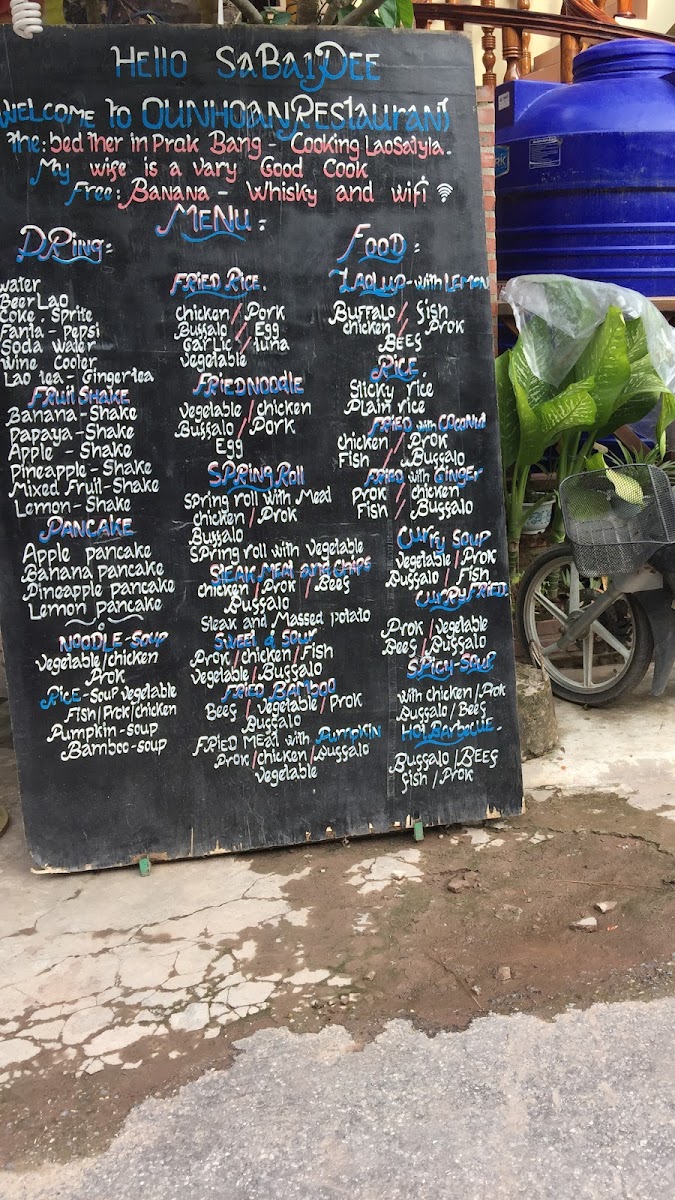 Hello SaBaiDee
WELCOME to OUNHOAN REStauranT
The: bed ther in Prak Bang - Cooking LaoSatyla.
My wife is a Vary Good Cook
Free: BANANA - Whisky and wifi
MENU:
DRing:
water
Beer Lao
Coke - Sprite
Fanta - Pepsi
Soda Water
Wine Cooler
Lao tea - Gingertea
Fruit Shake
Banana - Shake
Papaya - Shake
Apple - Shake
Pineapple - Shake
Mixed Fruit - Shake
Lemon - Shake
PANCAKE
Apple pancake
Banana pancake
Pineapple pancake
Lemon pancake
NOODLE-SOUP
Vegetable/chicken
Prok
RICE-Soup vegetable
Fish/Prok/chicken
Pumpkin-soup
Bamboo-soup
FRIED RICE.
chicken / Pork
Buffalo / Egg
Garlic / tuna
vegetable
FRIED NOODLE
Vegetable / chicken
Buffalo / Pork
Egg
SPRING Roll
Spring roll with Mead
chicken / Prok
Buffalo
SPring roll with vegetable
STEAK MEAL and CHIPS
chicken / Prok / Beef
Buffalo
Steak and Massed potato
SWEET & SOUR
Prok/chicken/Fish
Vegetable/Buffalo
FRIED BAMBOO
Beef / vegetable / Prok
Buffalo
FRIED MEAT with PUMPKIN
Prok/chicken/Buffalo
Vegetable
FOOD:
LAOLUP-with LEMON
Buffalo / fish
chicken / Prok
BEEF
RICE.
Sticky rice
Plain rice
FRIED with COCONUT
chicken / Prok
Fish / Buffalo
FRIED with GINGER
Prok / chicken
Fish / Buffalo
Curry SOUP
Vegetable / Prok
Buffalo / Fish
CURRYFRIED
Prok / Vegetable
Beef / Buffalo
SPICY-SOUP
with chicken / Prok
Buffalo / Beef
Hot Barbecue.
Buffalo / BEEF
fish / Prok